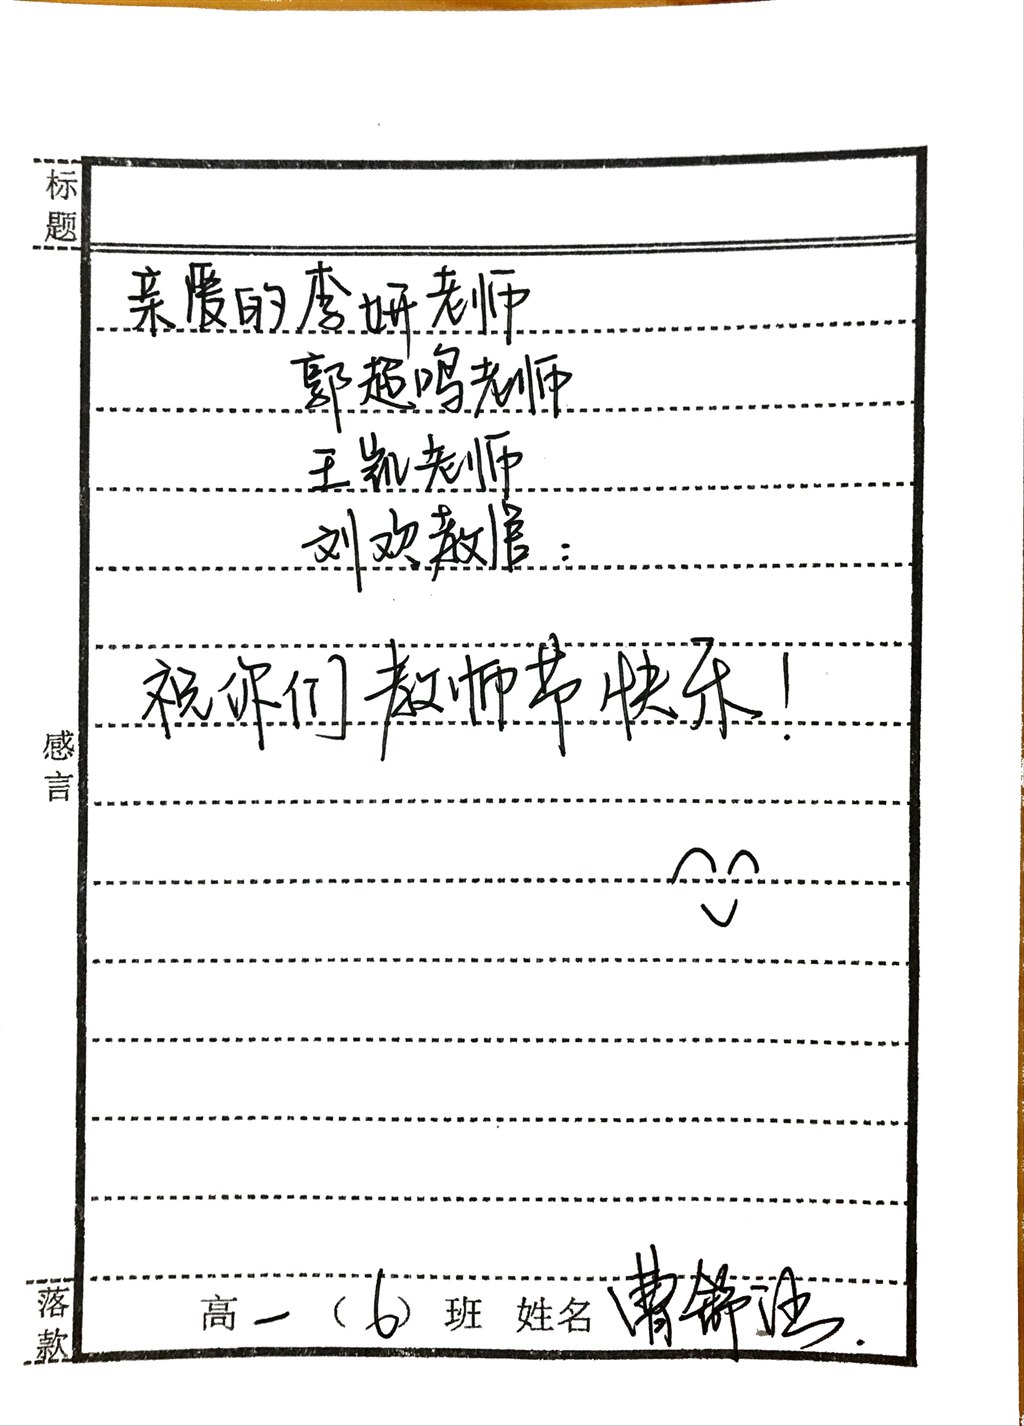 标题
亲爱的李妍老师
郭超鸣老师
王凯老师
刘欢教官：
祝你们教师节快乐！
感言
落款
高一（6）班 姓名 曹舒